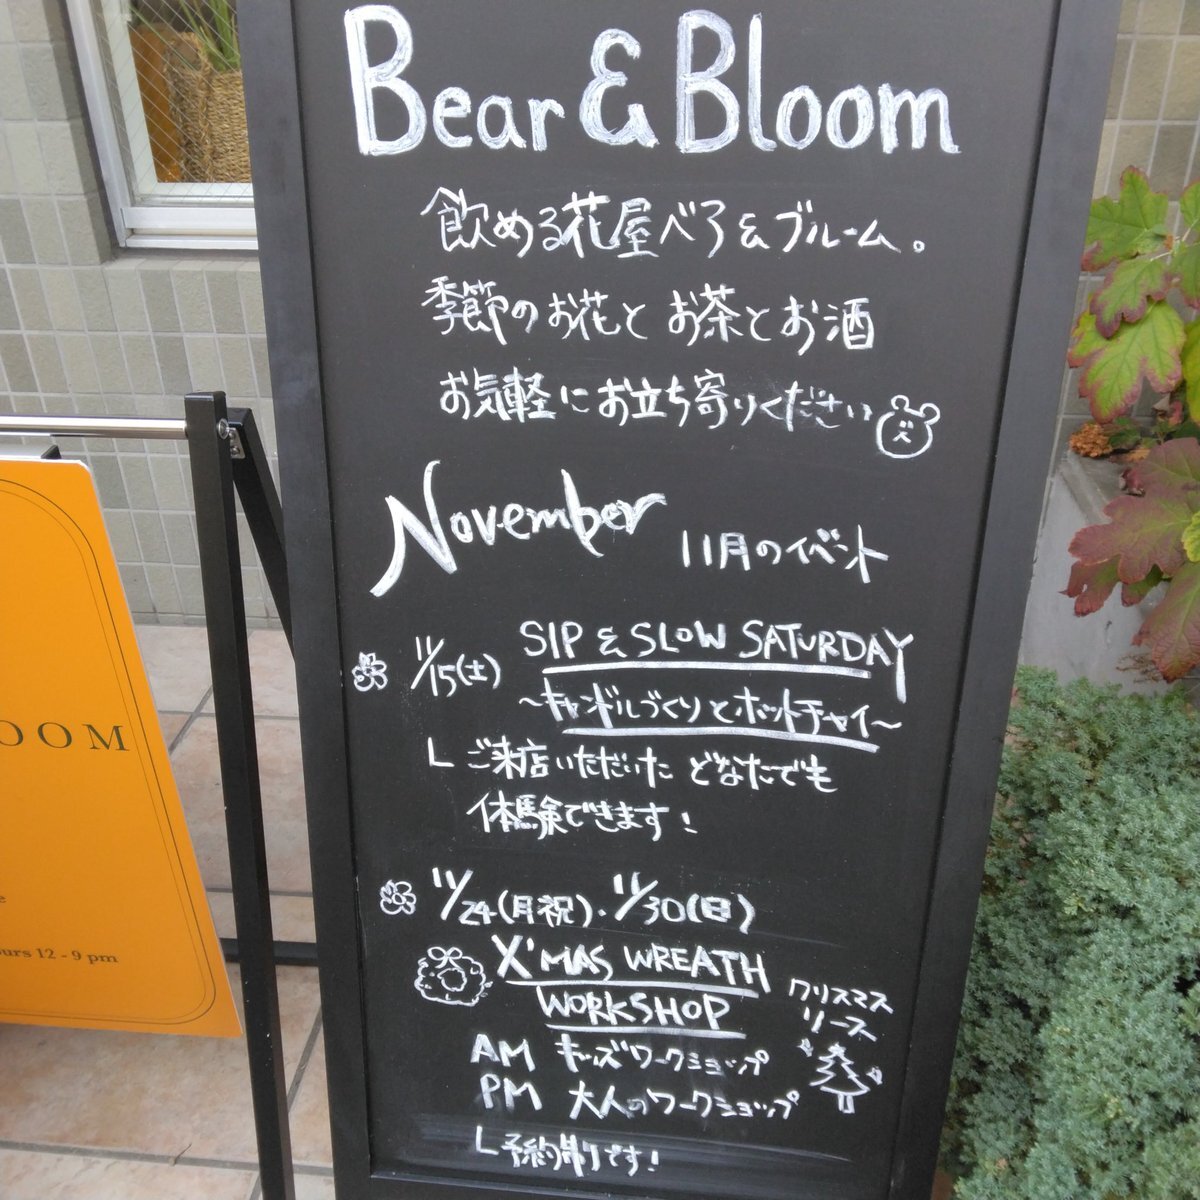 Bear & Bloom
飲める花屋ベア&ブルーム。
季節のお花とお茶とお酒
お気軽にお立ち寄りください
November 11月のイベント
11/15(土) SIP & SLOW SATURDAY
~キャンドルづくりとホットチャイ~
ご来店いただいたどなたでも
体験できます!
11/24(月祝)・11/30(日)
X'MAS WREATH
WORKSHOP
クリスマス
リース
AM キッズワークショップ
PM 大人のワークショップ
予約制です!
OOM
urs 12 - 9 pm